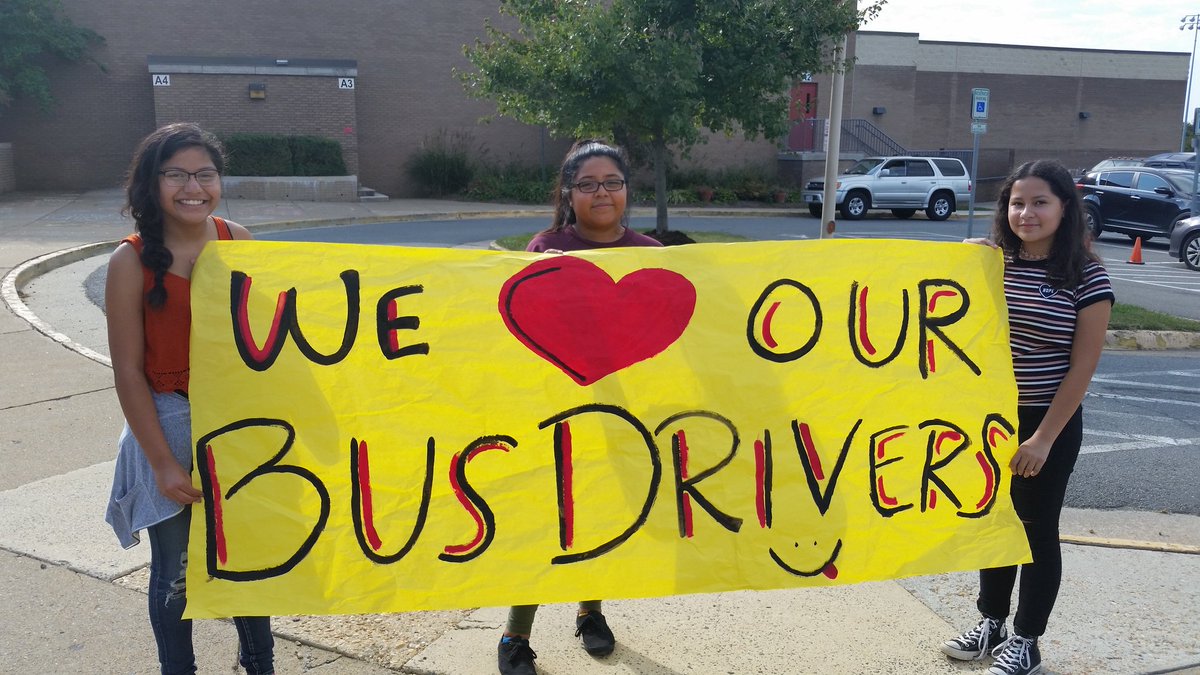 A4
A3
WE ❤ OUR
BUS DRIVERS